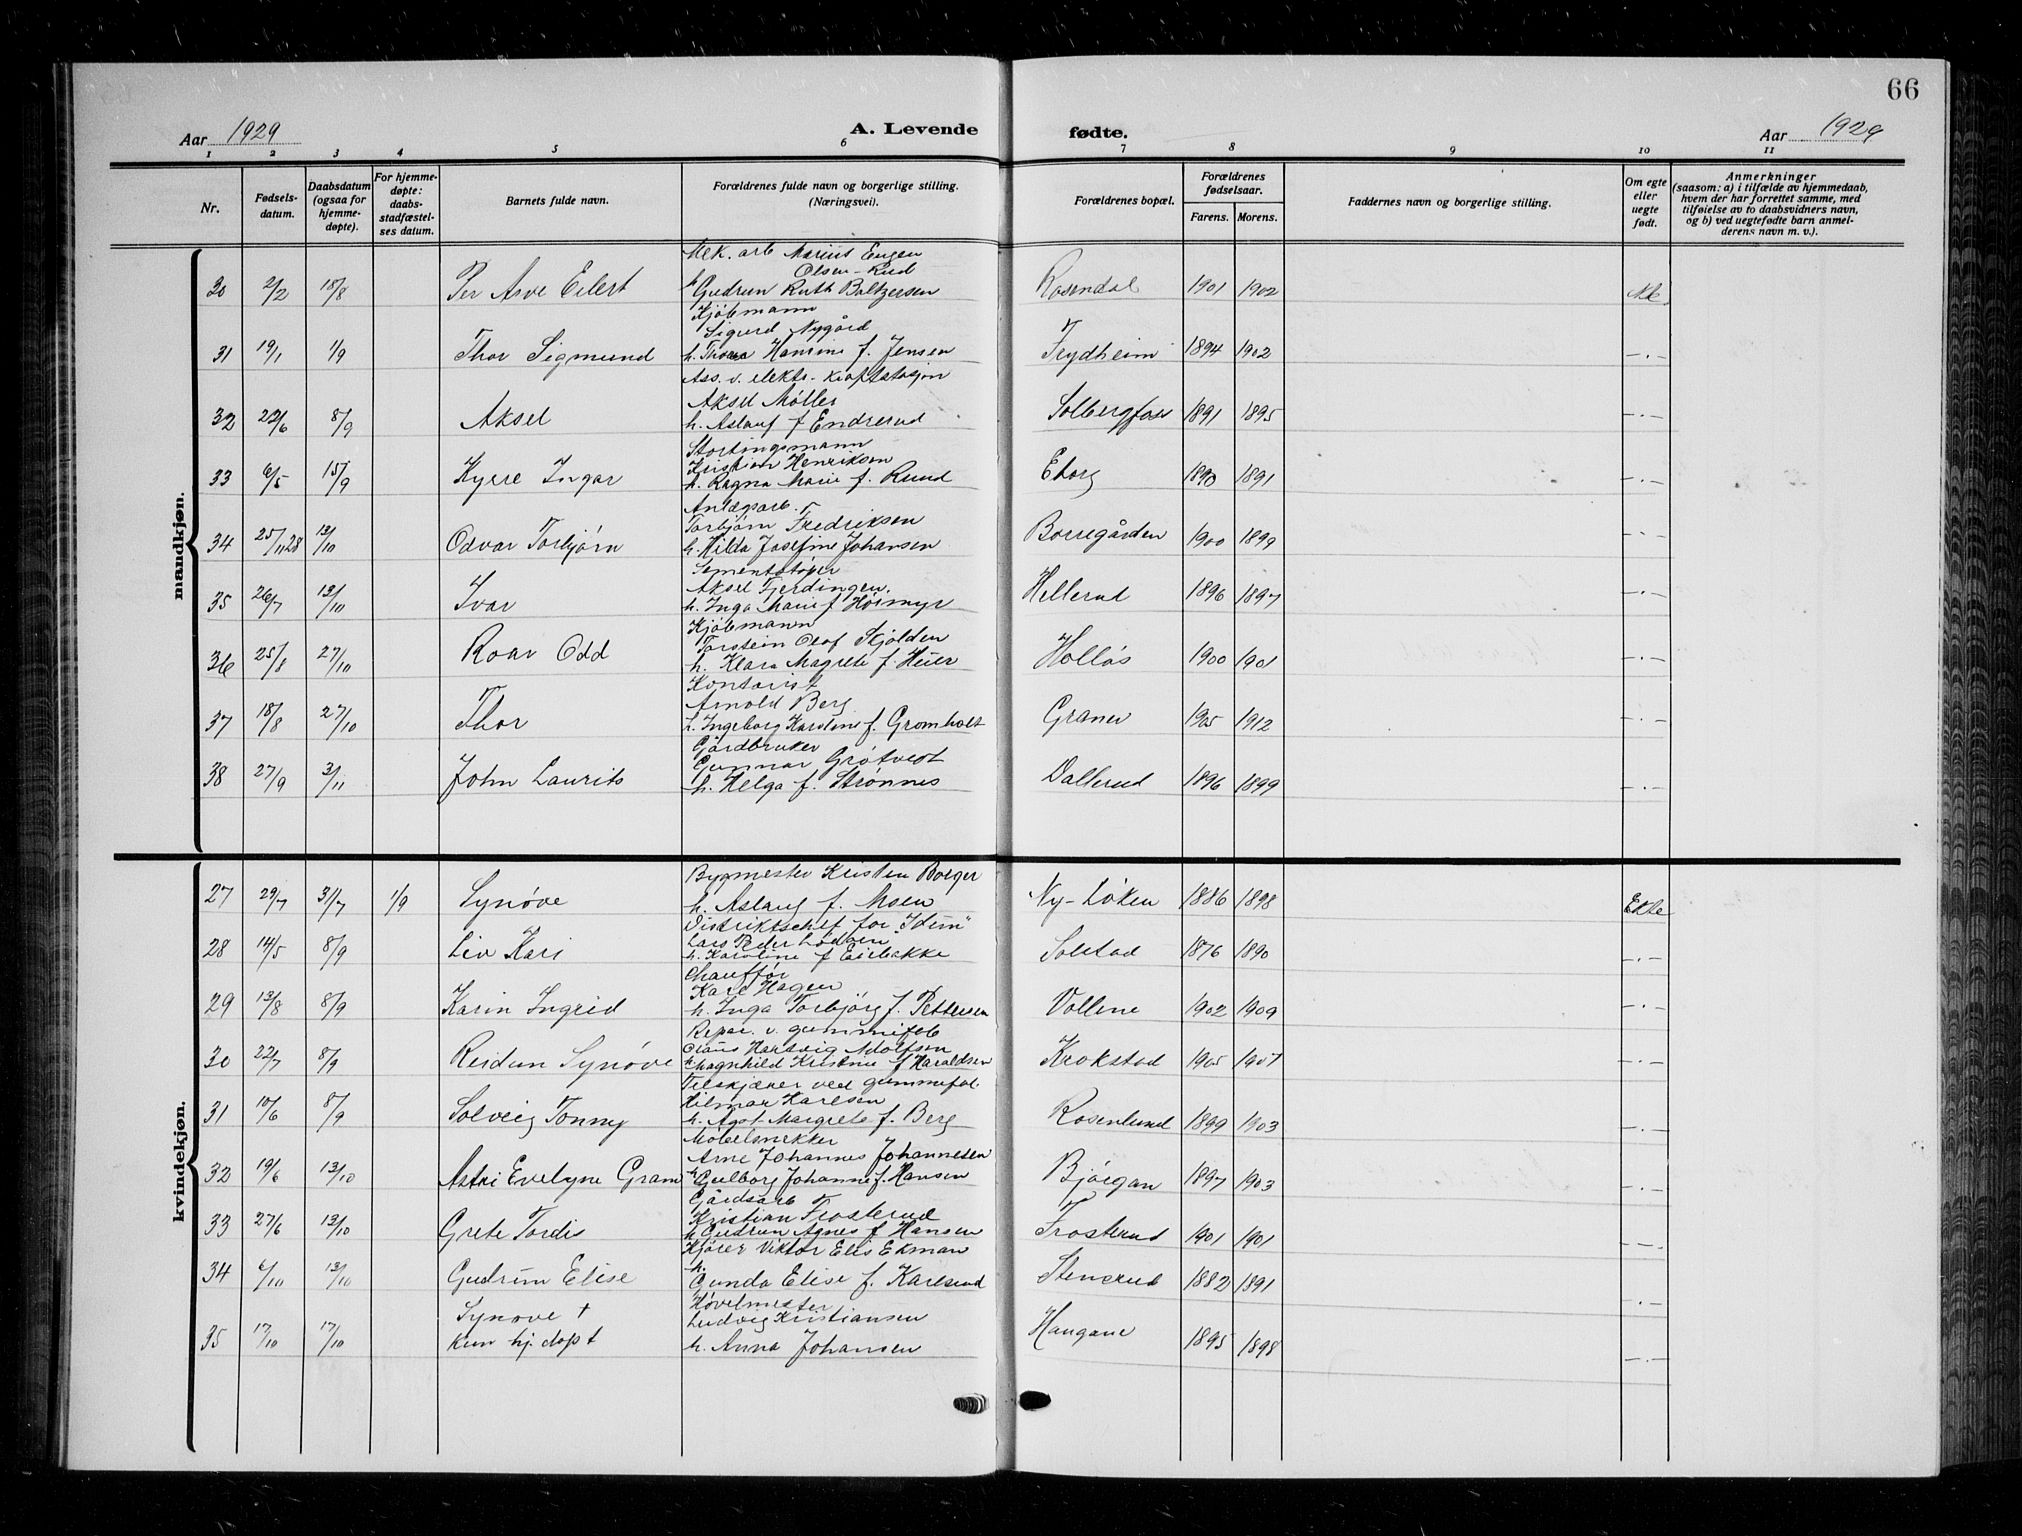 66
Aar 1929 A. Levende fødte. Aar 1929
1 2 3 4 5 6 7 8 9 10 11
Nr. Fødselsdatum. Daabsdatum (ogsaa for hjemmedøpte). For hjemmedøpte: daabsstadfæstelses datum. Barnets fulde navn. Forældrenes fulde navn og borgerlige stilling. (Næringsvei). Forældrenes bopæl. Forældrenes fødselsaar. Farens. Morens. Faddernes navn og borgerlige stilling. Om egte eller uegte født. Anmerkninger (saasom: a) i tilfælde av hjemmedaab, hvem der har forrettet samme, med tilføielse av to daabsvidners navn, og b) ved uegtefødte barn anmelderens navn m. v.).
mandkjøn.
Mek. arb Marius Eugen
Olsen-Rud
30 2/2 18/8 Per Arve Eilert h Gudrun Ruth Baltzersen Rosendal 1901 1902
Kjøbmann
Sigurd Nygård
31 19/1 1/9 Thor Sigmund h. Thora Hansine f. Jensen Frydheim 1894 1902 -.-
Ass. v. elektr. kraftstasjon
Aksel Møller
32 22/6 8/9 Aksel h. Aslaug f Endrerud Solbergfoss 1891 1895 -.-
Stortingsmann
Kristian Henriksen
33 6/5 15/9 Kyrre Ingar h. Ragna Marie f. Ruud Eborg 1890 1891 -.-
Anlægsarb.
Torbjørn Fredriksen
34 25/11 28 13/10 Odvar Torbjørn h. Hilda Josefine Johansen Borregården 1900 1899 -.-
Sementstøper
Aksel Fjerdingen.
35 26/7 13/10 Ivar h. Inga Marie f Hørmyr Hellerud 1896 1897 -.-
Kjøbmann
Torstein Olaf Skjolden
36 25/8 27/10 Roar Odd h. Klara Magrete f. Heier Hollås 1900 1901 -.-
Kontorist
Arnold Berg
37 18/8 27/10 Thor h. Ingeborg Karoline f. Gromholt Graner 1905 1912 -.-
Gårdbruker
Gunnar Grøtvedt
38 27/9 3/11 John Laurits h. Helga f. Strønnes Dallerud 1896 1899 -.-
kvindekjøn.
Bygmester Kristen Borger
27 29/7 31/7 1/9 Synøve h. Aslaug f. Moen Ny-Løken 1886 1898 Ekte
Distriktschef for "Idun"
Lars Peder Lødsen
28 14/5 8/9 Liv Kari h. Karoline f Eiebakke Solstad 1876 1890 -.-
Chauffør
Kare Hagen
29 13/8 8/9 Karin Ingrid h. Inga Torbjørg f. Pettersen Vollene 1902 1909 -.-
Repar. v. gummifab
Claus Hartvig Adolfsen
30 22/7 8/9 Reidun Synøve h Magnhild Kristine f Haraldsen Krokstad 1905 1907 -.-
Tilskjærer ved gummifab.
Hilmar Karlsen
31 10/6 8/9 Solveig Tonny h. Agot Margrete f. Berg Rosenlund 1899 1903 -.-
Møbelsnekker
Arne Johannes Johannesen
32 19/6 13/10 Astri Evelyne Gram h Gulborg Johanne f. Hansen Bjørgan 1897 1903 -.-
Gårdsarb
Kristian Frosterud
33 27/6 13/10 Grete Tordis h Gudrun Agnes f Hansen Frosterud 1901 1901 -.-
Kjører Viktor Elis Ekman
34 6/10 13/10 Gudrun Elise h. Gunda Elise f. Karlsrud Stenerud 1882 1891 -.-
Høvelmester
Synøve † Ludvig Kristiansen
35 17/10 17/10 kun hj. døpt h. Anna Johansen Haugane 1895 1898 -.-